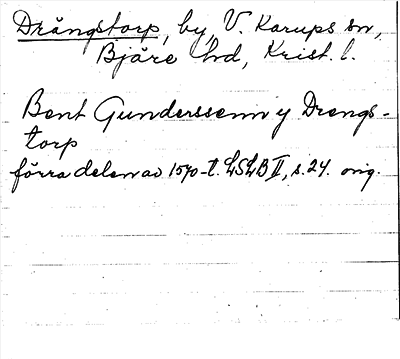 Drängstorp, by, V. Karups sn,
Bjäre hd, Krist. l.
Bent Gunderssenn y Drengs-
torp
förra delen av 1570-t. LSLB II, s. 24. orig.